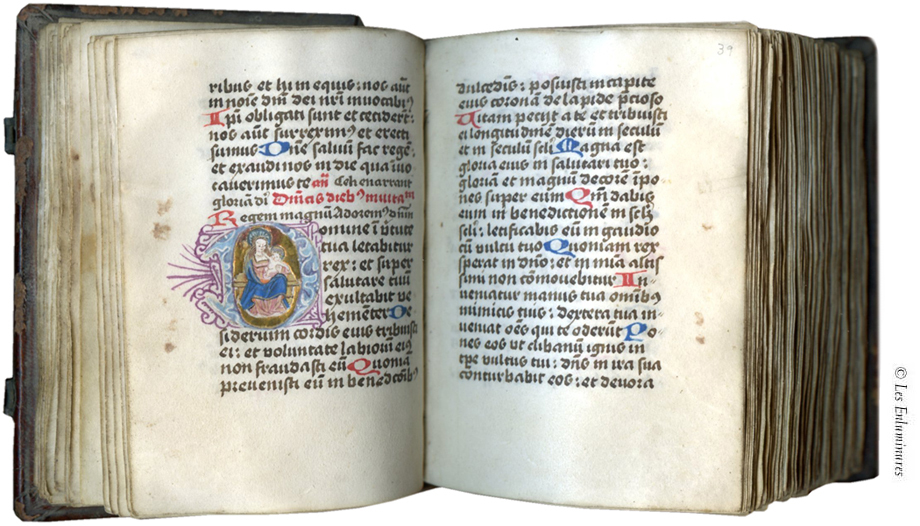 ribus et hi in equis : nos aut̄
in noīe dn̄i dei nr̄i invocabimꝰ
Ip̄i obligati sunt et ceciderūt :
nos aūt surreximꝰ et erecti
sumus Dn̄e salvū fac regē :
et exaudi nos in die qua invo
caverimus te añ Celi enarrant
gloriā dī
Regem magnū Adoremꝰ dn̄m
Domine ī v̄tute
tua letabitur
rex : et super
salutare tuū
exultabit ve
hementer De
siderium cordis eius tribuisti
ei : et voluntate labiorū eiꝰ
non fraudasti eū Quoniā
prevenisti eū in benedictōībꝰ
39
dulcedīs : posuisti in capite
eius coronā de lapide p̄cioso
Vitam petijt a te et tribuisti
ei longitudinē dierū in seculū
et in seculū sc̄li Magna est
gloria eius in salutari tuo :
gloriā et magnū decorē īpo
nes super eum Qm̄ dabis
eum in benedictionem in sc̄lm
sc̄li : letificabis eū in gaudio
cū vultu tuo Quoniam rex
sperat in dn̄o : et in mīa altis
simi non cōmovebitur In-
veniatur manus tua omībꝰ
inimicis tuis : dextera tua in-
veniat oēs qui te oderūt Po-
nes eos ut clibanū ignis in
tp̄e vultus tui : dn̄s in ira sua
conturbabit eos : et devora
© Les Enluminures